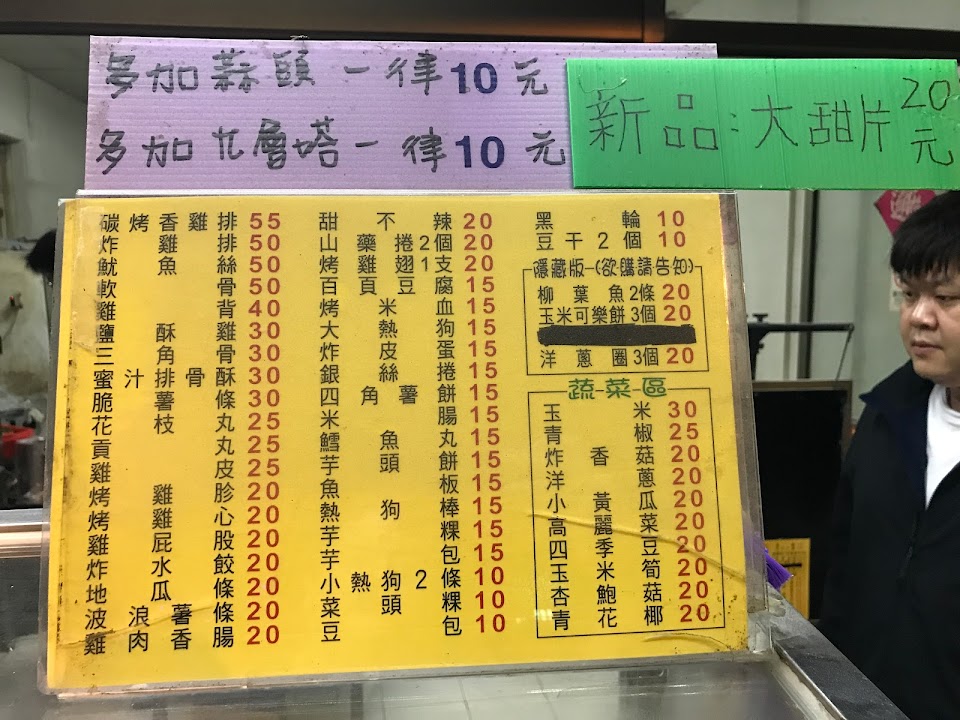 多加蒜頭一律10元
多加九層塔一律10元
新品：大甜片20元
碳烤香雞排 55
炸雞排 50
魷魚絲 50
軟骨 50
雞背 40
鹽酥雞 30
三角骨 30
蜜汁排骨酥 30
脆薯條 30
花枝丸 25
貢丸 25
雞皮 25
烤雞胗 20
烤雞心 20
雞屁股 20
炸水餃 20
地瓜條 20
波浪薯條 20
雞肉香腸 20
甜不辣 20
山藥捲2個 20
烤雞翅1支 20
百頁豆腐 15
烤米血 15
大熱狗 15
炸皮蛋 15
銀絲捲 15
四角薯餅 15
米腸 15
鱈魚丸 15
芋頭餅 15
魚板 15
熱狗棒 15
芋粿 15
芋包 15
小熱狗2條 10
菜頭粿 10
豆包 10
黑輪 10
豆干2個 10
隱藏版-(欲購請告知)
柳葉魚2條 20
玉米可樂餅3個 20
洋蔥圈3個 20
蔬菜區
玉米 30
青椒 25
炸香菇 20
洋蔥 20
小黃瓜 20
高麗菜 20
四季豆 20
玉米筍 20
杏鮑菇 20
青花椰 20